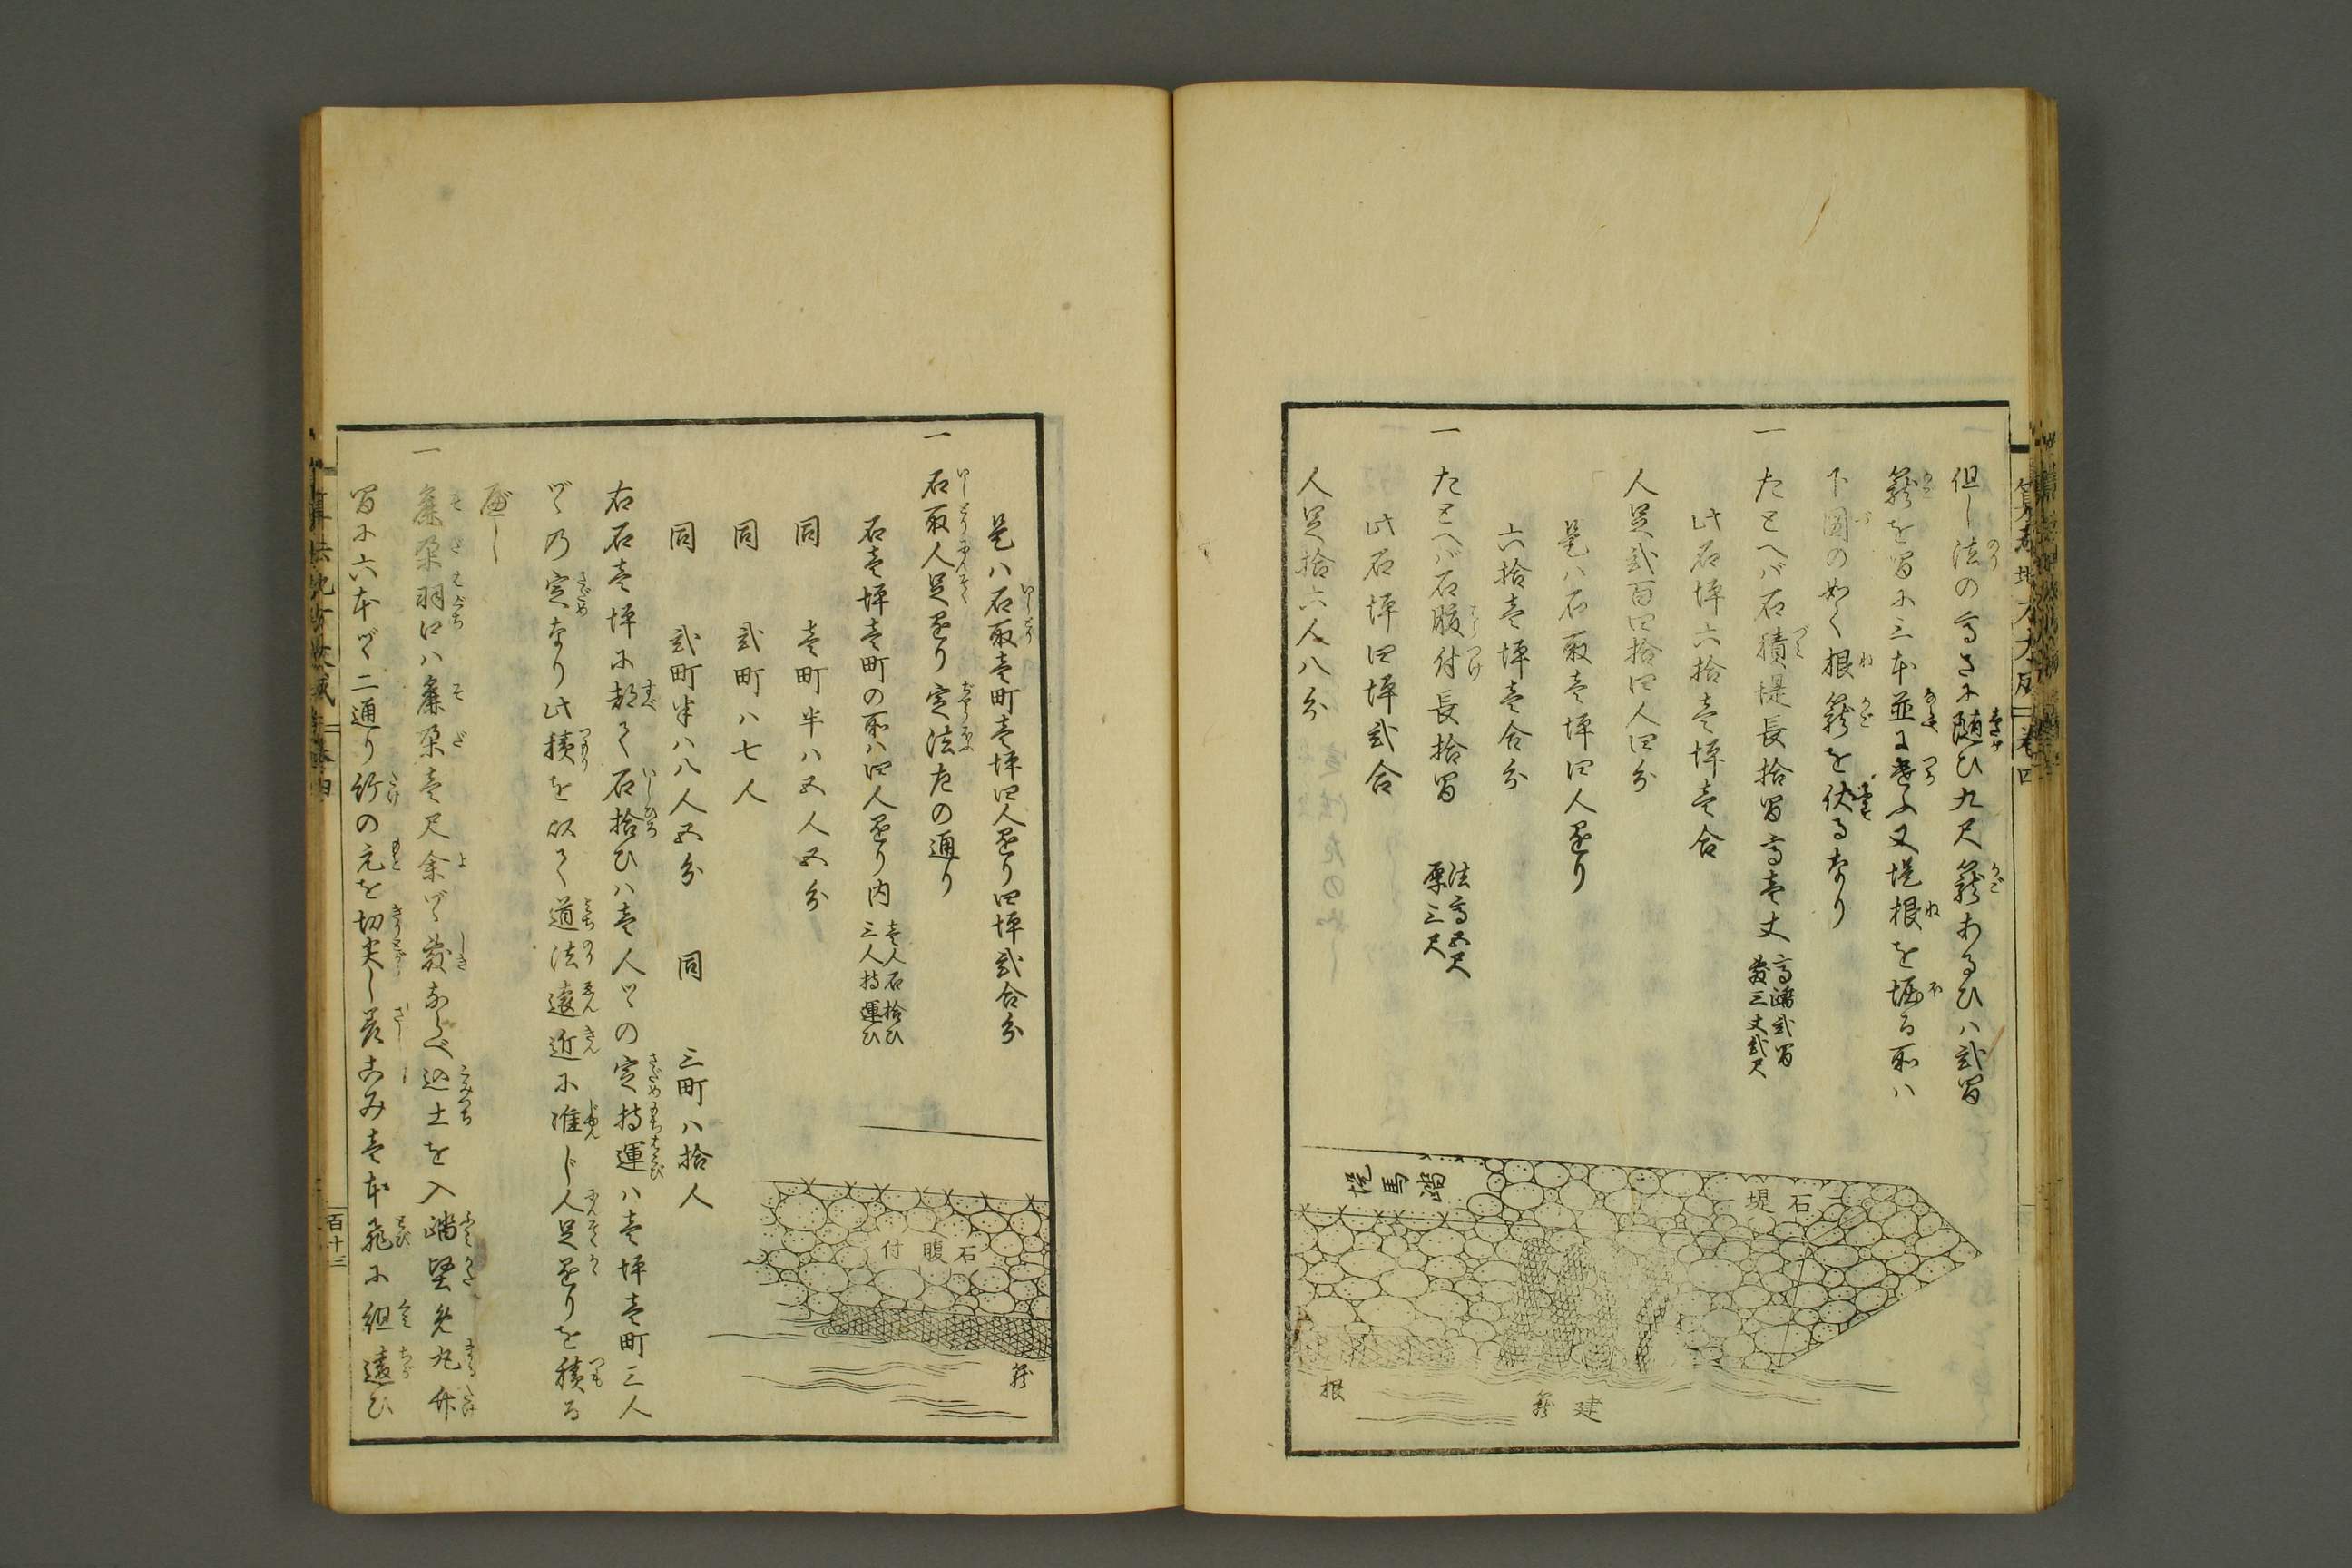 但し法の高さに随ひ九尺籠あるひハ弐間
籠を間に三本並
又堤根を堀る所ハ
下図の如く根籠を伏るなり
一 たとへバ石積堤長拾間高壱丈 高踏弐間 敷三丈弐尺
此石坪六拾壱坪壱合
人足弐百四拾四人四分
是ハ石取壱坪四人掛り
六拾壱坪壱合分
一 たとへバ石腹付長拾間 法高五尺 厚三尺
此石坪四坪弐合
人足拾六人八分
石堤
堤馬踏
建籠
根
是ハ石取壱町壱坪四人掛り四坪弐合分
一 石取人足掛り定法左の通り
石壱坪壱町の所ハ四人掛り内 壱人石拾ひ 三人持運ひ
同 壱町半ハ五人五分
同 弐町ハ七人
同 弐町半ハ八人五分 同 三町ハ拾人
右石壱坪に都て石拾ひハ壱人ツヽの定持運ハ壱坪壱町三人
ヅヽの定なり此積を以て道法遠近に准じ人足掛りを積る
べし
一 麁朶羽口ハ麁朶壱尺余ヅヽ敷ならべ込土を入踏堅め丸竹
間に六本ヅヽ二通り竹の元を切尖し差こみ壱本飛に組違ひ
石腹付
籠
百十三